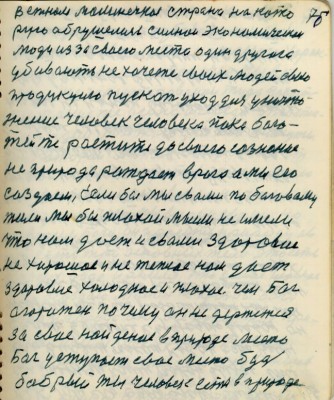 75
ветнам маленичкая страна на кото
рую обрушились сильное экономически
люди из за своего места один другога
убивают не хочете своих людей свою
продукцию пускать уход для уничто-
жение человек человека пока бога-
тейте растите до своего сознание
не природа рождает врага а ми его
создаем, если бы мы свами по боговому
жили мы бы плохой мысли не имели
что нам дает и свами здоровие
не хорошое и не теплое нам дает
здоровие холодное и плохое чем Бог
огорожен почиму он не держется
за свое найденое в природе место
Бог уступает свое место буд
бобрый ты человек есть в природе